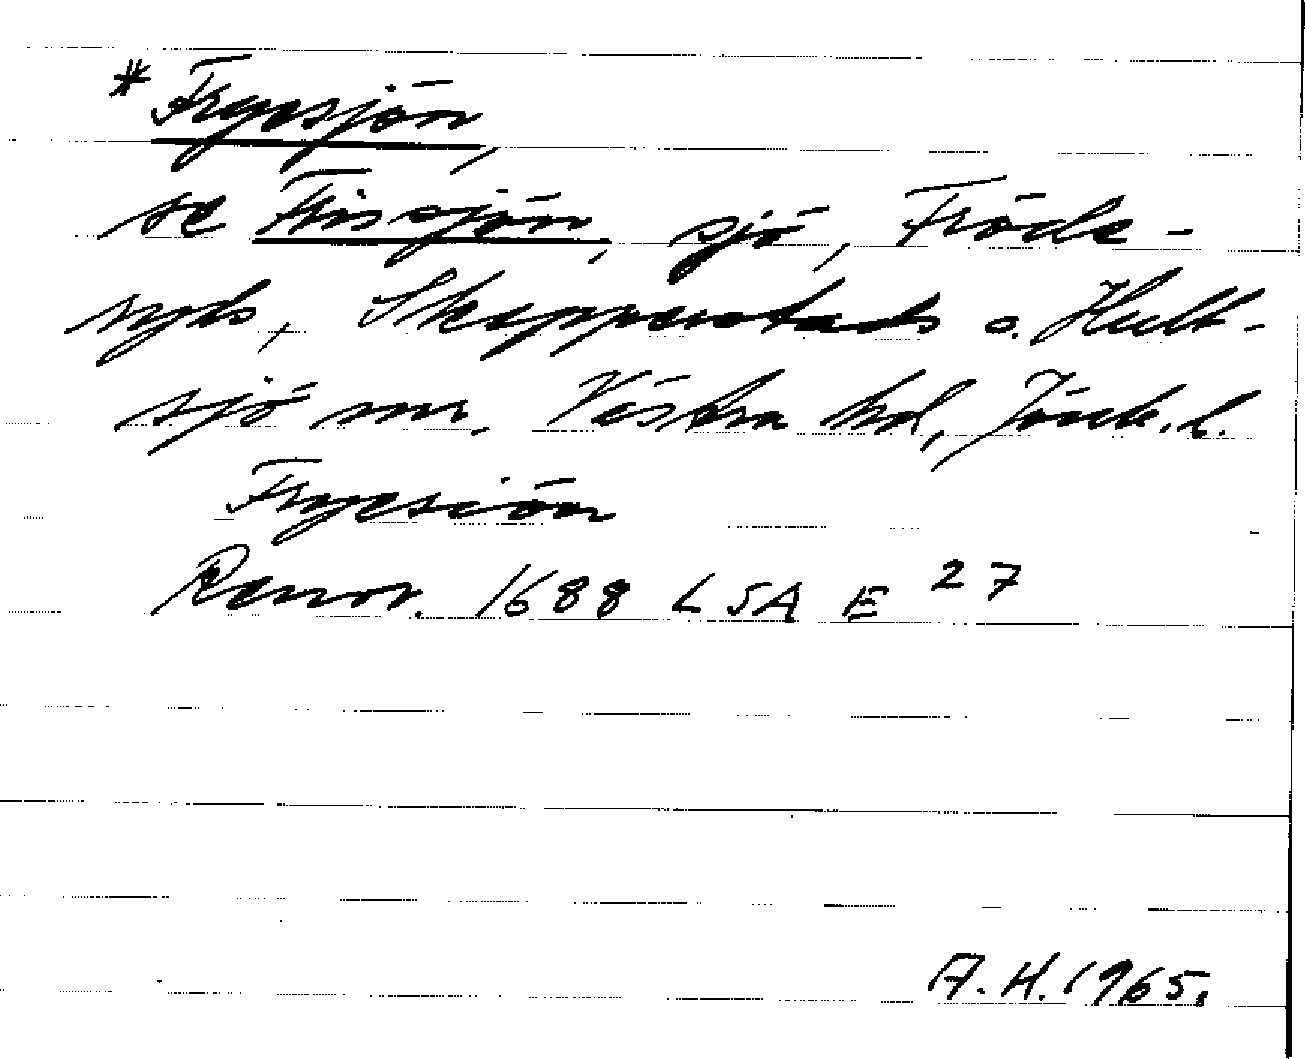 * Fryesjön,
se Frissjön, sjö, Fröde-
ryds, Skepperstads o. Hult-
sjö snr. Västra hd, Jönk. l.
Fryesiön
Rannr. 1688 LSA E 27
A.H. 1965.